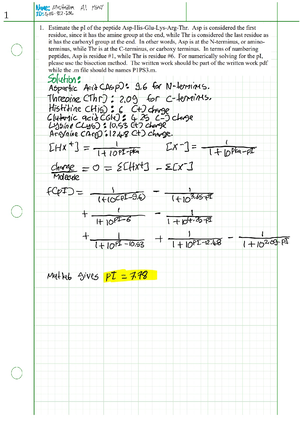 1
1. Estimate the pI of the peptide Asp-His-Glu-Lys-Arg-Thr. Asp is considered the first
residue, since it has the amine group at the end, while Thr is considered the last residue as
it has the carboxyl group at the end. In other words, Asp is at the N-terminus, or amino-
terminus, while Thr is at the C-terminus, or carboxy terminus. In terms of numbering
peptides, Asp is residue #1, while Thr is residue #6. For numerically solving for the pI,
please use the bisection method. The written work should be part of the written work pdf
while the .m file should be names P1PS3.m.
Solution:
Aspartic Acid (Asp): 9.6 for N-terminus.
Threonine (Thr): 2.09 for C-terminus.
Histidine (His): 6 (+) charge
Glutamic acid (Glu): 4.25 (-) charge
Lysine (Lys): 10.53 (+) charge
Arginine (Arg): 12.48 (+) charge
[HX+] = 1 / 1+10^pI-pKa [X-] = 1 / 1+10^pKa-pI
charge / Molecule = 0 = Σ[HX+] - Σ[X-]
f(pI) = 1 / 1+10^(pI-9.6) - 1 / 1+10^
+ 1 / 1+10^pI-6 - 1 / 1+10^
+ 1 / 1+10^pI-10.53 + 1 / 1+10^pI-12.48 - 1 / 1+10^2.09-pI
Matlab gives pI = 7.78